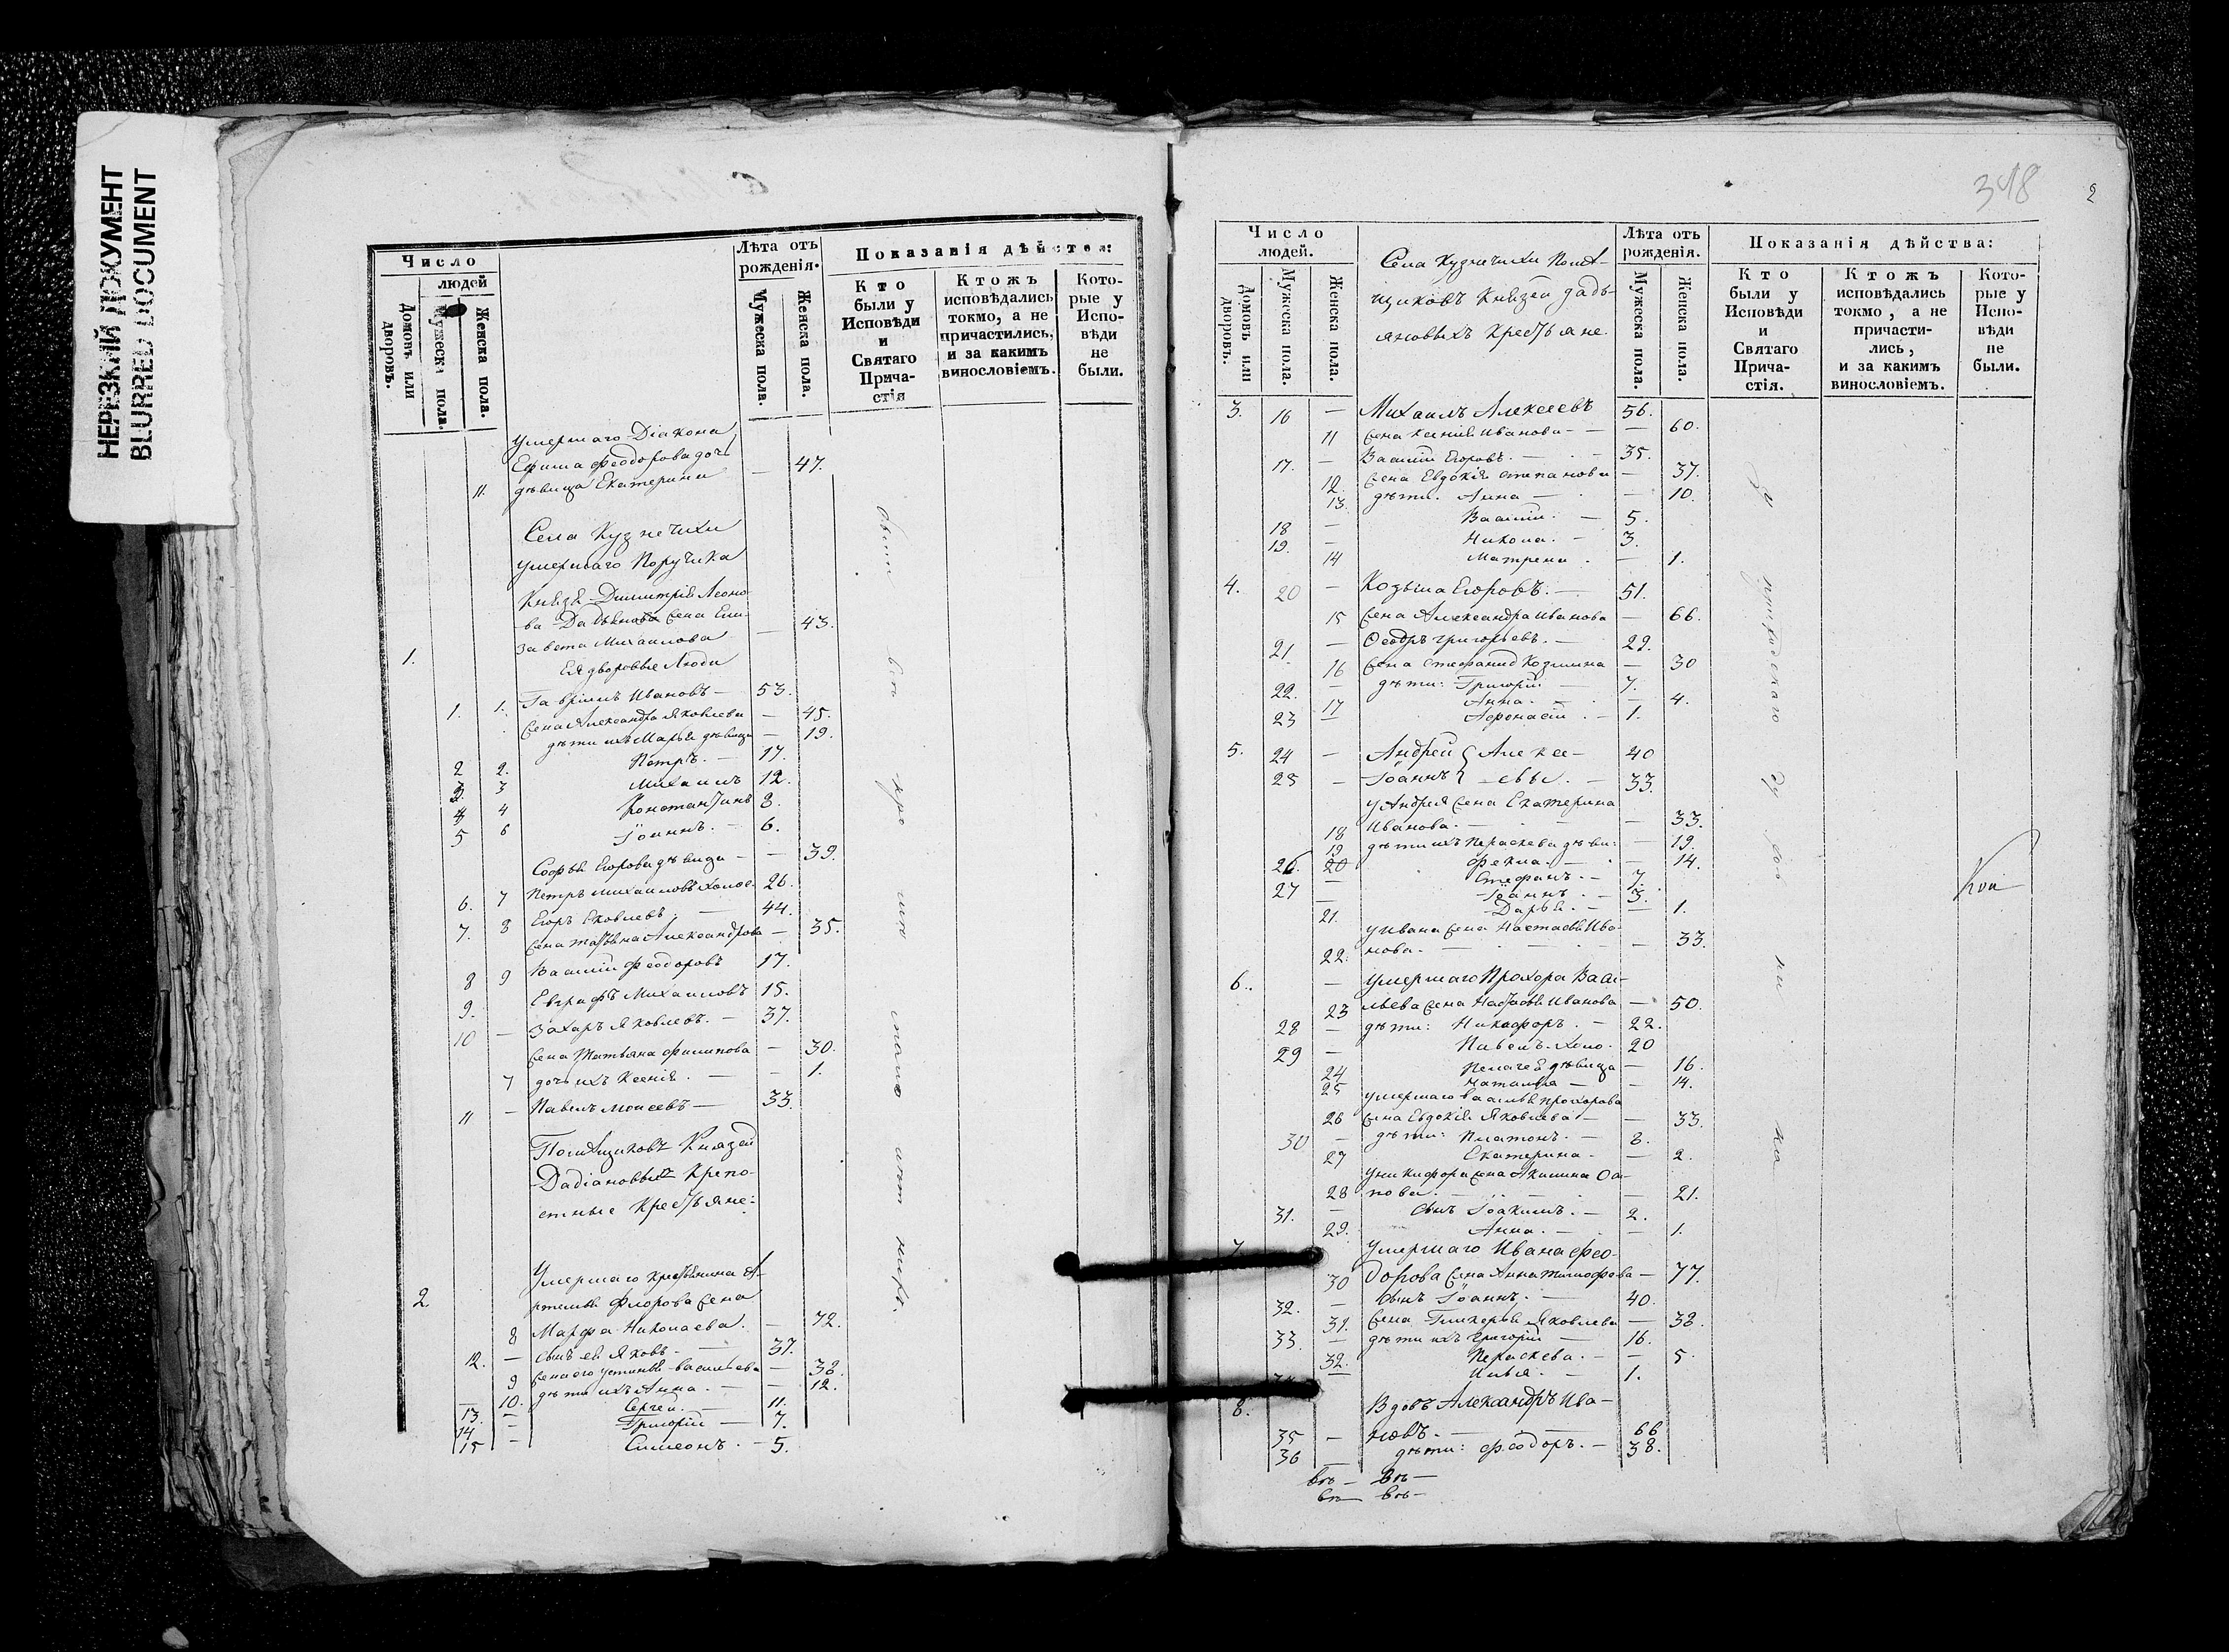 НЕРЕЗКИЙ ДОКУМЕНТ
BLURRED DOCUMENT
Число
людей
Домовъ или дворовъ.
Мужеска пола.
Женска пола.
Лѣта отъ рожденія.
Мужеска пола.
Женска пола.
Показанія дѣйства:
Кто были у Исповѣди и Святаго Прича-стія
Ктожъ исповѣдались токмо, а не причастились, и за какимъ винословіемъ.
Кото-рые у Испо-вѣди не были.
умершаго Діакона
Ефима Феодорова дочь
11. дѣвица Екатерина — 47.
Села Кузнечихи
умершаго Поручика
Князя Димитрія Леоно-
ва Дадьянова жена Ели-
завета Михаилова — 43.
1. Ея дворовые Люди
1. 1. Гавріилъ Ивановъ — 53.
жена Александра Яковлева — 45.
дѣти ихъ Марья дѣвица — 19.
2 2. Петръ. — 17.
3. 3 Михаилъ 12.
4 4 Константинъ 8.
5 6 Іоаннъ. — 6.
Софья Егорова дѣвица — — 39.
6. 7 Петръ Михаиловъ холос. 26.
7. 8 Егоръ Яковлевъ. — 44.
жена Татьяна Александрова — 35.
8 9 Василій Феодоровъ 17.
9. Евграфъ Михаиловъ 15.
10 — Захаръ Яковлевъ. — 37.
жена Татьяна Филипова — 30.
7 дочь ихъ Ксенія. — — 1.
11 — Павелъ Моисеевъ — 33.
Помѣщиковъ Князей
Дадіановыхъ Крепо-
стные Крестьяне:
2. Умершаго крестьянина А-
ртемья Флорова жена
8 Марфа Николаева. — 72.
12. — сынъ ея Яковъ — 37.
9 жена его Устинья Васильева — 38.
10. дѣти ихъ Анна. — — 12.
13. — Сергей. — 11.
14 — Григорій — 7.
15 — Симеонъ. — 5.
348
2
Число
людей.
Домовъ или дворовъ.
Мужеска пола.
Женска пола.
Села Кузнечихи Помѣ-
щиковъ Князей Дадь-
яновыхъ Крестьяне.
Лѣта отъ рожденія.
Мужеска пола.
Женска пола.
Показанія дѣйства:
Кто были у Исповѣди и Святаго Прича-стія.
Ктожъ исповѣдались токмо, а не причасти-лись, и за какимъ винословіемъ.
Кото-рые у Испо-вѣди не были.
3. 16 — Михаилъ Алексеевъ 56.
11 жена Ксенія Иванова — — 60.
17. — Василій Егоровъ. — 35.
12. жена Евдокія Степанова — 37.
13. дѣти: Анна — — 10.
18 — Василій. — 5.
19. — Никола. — 3.
14 Матрена. — 1.
4. 20 — Козьма Егоровъ. — 51.
15 жена Александра Иванова — 66.
21. — Феодръ Григорьевъ. — 29.
16 жена Стефанид Козмина — 30
22. — дѣти: Григорій — 7.
17 Анна. — — 4.
23 — Афонасій. — 1.
5. 24 — Андрей Алексе- 40
25 — Іоаннъ евы. — 33.
у Андрея жена Екатерина
18 Иванова. — — 33.
19 дѣти ихъ Параскева дѣви: — 19.
20 Фекла. — — 14.
26. Стефанъ. — 7.
27 — Іоаннъ. — 3.
21. Дарья. — — 1.
у Ивана жена Настасья Ива-
22. нова. — — 33.
6. — умершаго Прохора Васи-
23 льева жена Настасья Иванова — 50.
28 — дѣти: Никифоръ. — 22.
29 — Павелъ холо. 20
24 Пелагея дѣвица — 16.
25 Наталья — — 14.
умершаго Василья Прохорова
26 жена Евдокія Яковлева — — 33.
30 — дѣти: Платонъ. — 8.
27 Екатерина. — — 2.
у Никифора жена Акилина Оси-
28 пова. — — 21.
31. — сынъ Іоакимъ. — 2.
29. Анна. — — 1.
7. Умершаго Ивана Фео-
30 дорова жена Анна Тимофеева — 77.
32. — сынъ Іоаннъ. — 40.
31. жена Гликерья Яковлева — 38.
33. — дѣти ихъ Григорій — 16.
32. Параскева. — — 5.
— Илья. — 1.
8. Вдовъ Александръ Ива-
35 — новъ. — 66
36 — дѣти: Феодоръ. — 38.